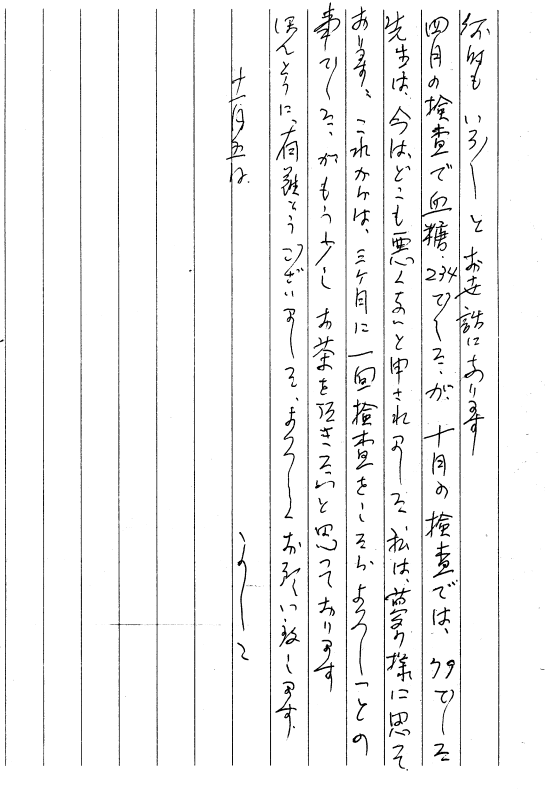 何時も いろ〳〵と お世話になります
四月の検査で血糖 234でしたが、十月の検査では、79でした
先生は、今は、どこも悪くないと申されました、私は、夢の様に思って
おります、これからは、三ヶ月に一回検査をしたらよろしいとの
事でした、がもう少し お茶を頂きたいと思っております
ほんとうに、有難とうございました、よろしくお願い致します。
十一月五日